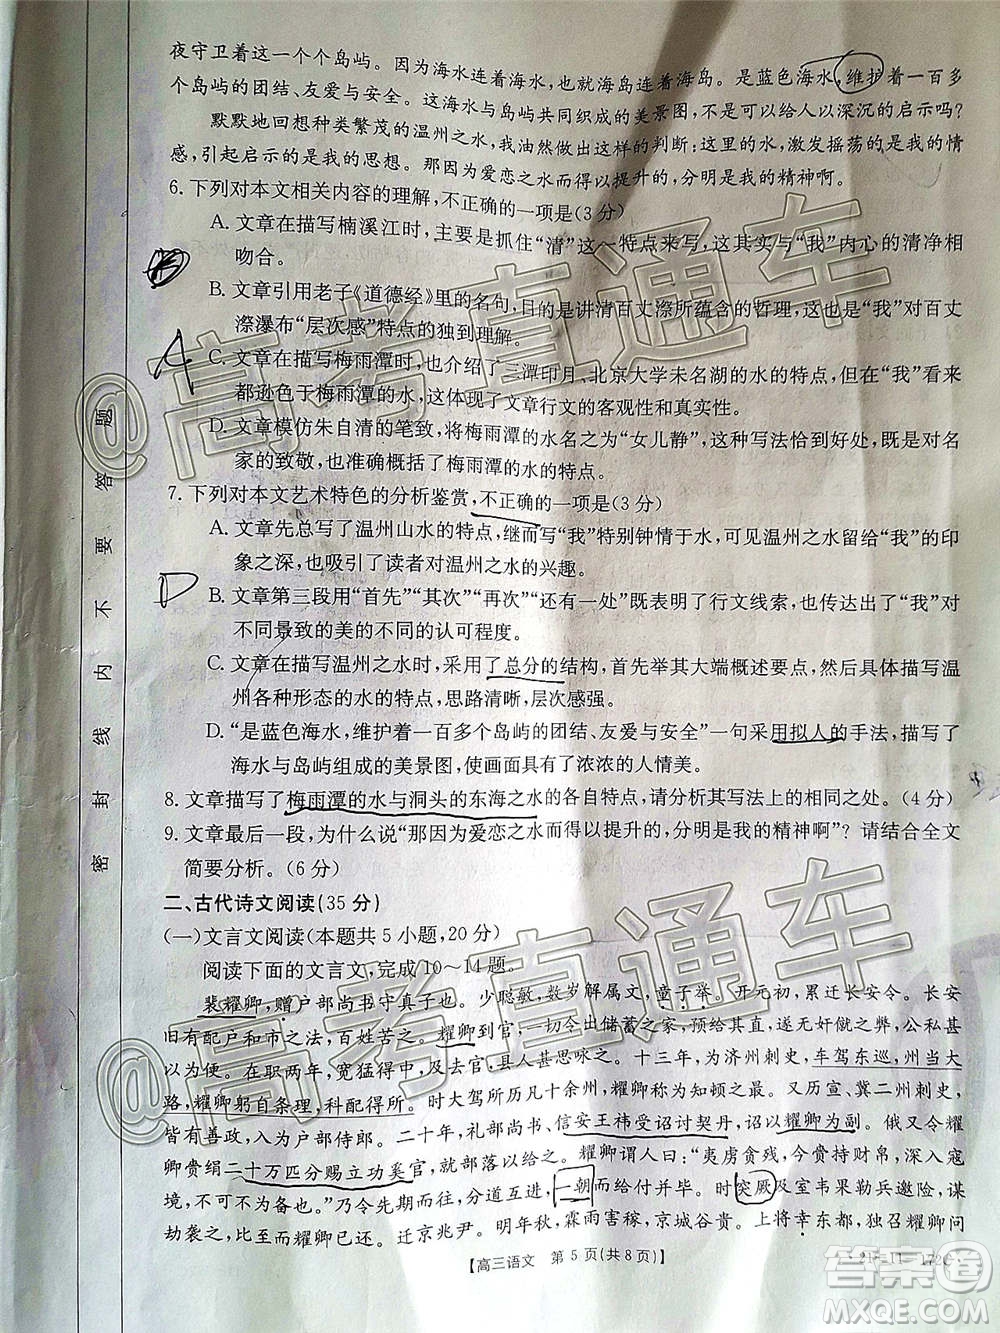 夜守卫着这一个个岛屿。因为海水连着海水,也就海岛连着海岛。是蓝色海水,维护着一百多
个岛屿的团结、友爱与安全。这海水与岛屿共同织成的美景图,不是可以给人以深沉的启示吗?
默默地回想种类繁茂的温州之水,我油然做出这样的判断:这里的水,激发摇荡的是我的情
感,引起启示的是我的思想。那因为爱恋之水而得以提升的,分明是我的精神啊。
6. 下列对本文相关内容的理解,不正确的一项是(3 分)
A. 文章在描写楠溪江时,主要是抓住“清”这一特点来写,这其实与“我”内心的清净相
吻合。
B. 文章引用老子《道德经》里的名句,目的是讲清百丈漈所蕴含的哲理,也是“我”对百丈
漈瀑布“层次感”特点的独到理解。
C. 文章在描写梅雨潭时,也介绍了三潭印月、北京大学未名湖的水的特点,但在“我”看来
都逊色于梅雨潭的水的特点,增强了文章行文的客观性和真实性。
D. 文章模仿朱自清的笔致,将梅雨潭的水名之为“女儿静”,这种写法恰到好处,既是对名
家的致敬,也准确概括了梅雨潭的水的特点。
7. 下列对本文艺术特色的分析鉴赏,不正确的一项是(3 分)
A. 文章先总写了温州山水的特点,继而写“我”特别钟情于水,可见温州之水留给“我”的印
象之深,也引起了读者对温州之水的兴趣。
B. 文章第三段用“首先”“其次”“再次”“还有一处”既表明了行文线索,也传达出了“我”对
不同景致的美的不同的认可程度。
C. 文章在描写温州之水时,采用了总分的结构,首先举其大端概述要点,然后具体描写温
州各种形态的水的特点,思路清晰,层次感强。
D. “是蓝色海水,维护着一百多个岛屿的团结、友爱与安全”一句采用拟人的手法,写出了
海水与岛屿组成的美景图,使画面具有了浓浓的人情美。
8. 文章描写了梅雨潭的水与洞头的东海之水的各自特点,请分析其写法上的相同之处。(4 分)
9. 文章最后一段,为什么说“那因为爱恋之水而得以提升的,分明是我的精神啊”?请结合全文
简要分析。(6 分)
二、古代诗文阅读(35 分)
(一)文言文阅读(本题共 5 小题,20 分)
阅读下面的文言文,完成 10~14 题。
裴耀卿,赠户部尚书守真子也。少聪敏,数岁解属文,童子举。开元初,累迁长安令。长安
旧有配户和市之法,百姓苦之。耀卿到官,一切令出储蓄之家,预给其直,遂无奸僦之弊,公私甚
以为便。在职两年,宽猛得中,及去官,县人甚思咏之。十三年,为济州刺史,车驾东巡,州当大
路,耀卿躬自条理,科配得所。时大驾所历凡十余州,耀卿称为知顿之最。又历宣、冀二州刺史,
皆有善政,入为户部侍郎。二十年,礼部尚书、信安王祎受诏讨契丹,诏以耀卿为副。俄又令耀
卿赍绢二十万匹分赐立功奚官,就部落以给之。耀卿谓人曰:“夷虏贪残,今赍持财货,深入寇
境,不可不为备也。”乃令先期而往,分道互进,一朝而给付并毕。时突厥及室韦果勒兵邀险,谋
劫袭之,比至而耀卿已还。迁京兆尹。明年秋,霖雨害稼,京城谷贵。上将幸东都,独召耀卿问
【高三语文 第 5 页(共 8 页)】
密 封 线 内 不 要 答 题
A
D
@高考直通车
@高考直通车
答案圈
MXQE.COM